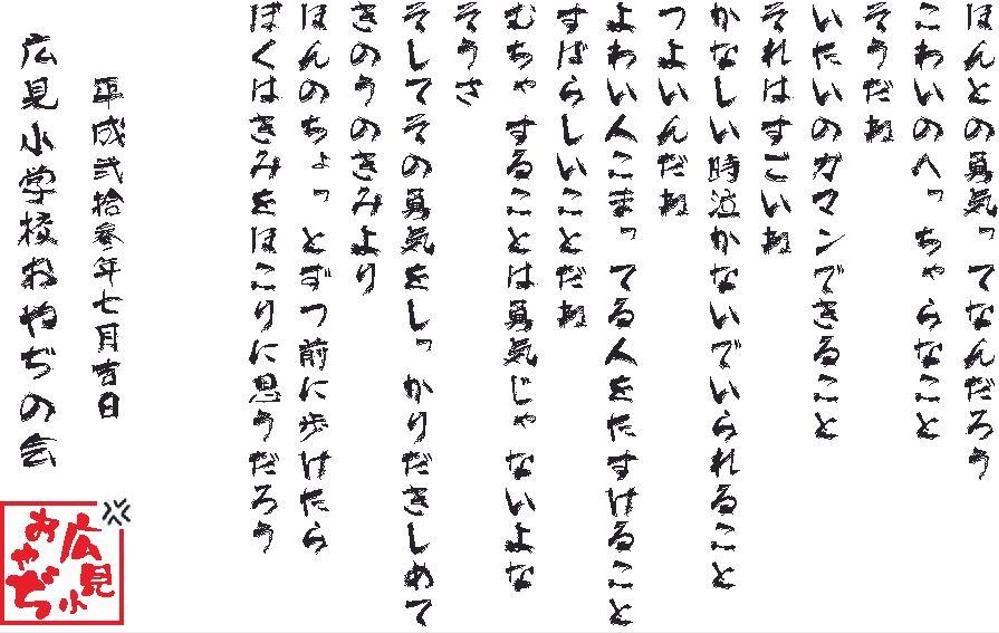 ほんとの勇気ってなんだろう
こわいのへっちゃらなこと
そうだね
いたいのガマンできること
それはすごいね
かなしい時泣かないでいられること
つよいんだね
よわい人こまってる人をたすけること
すばらしいことだね
むちゃすることは勇気じゃないよな
そうさ
そしてその勇気をしっかりだきしめて
きのうのきみより
ほんのちょっとずつ前に歩けたら
ぼくはきみをほこりに思うだろう
平成弐拾参年七月吉日
広見小学校おやぢの会
広見小
おやぢ